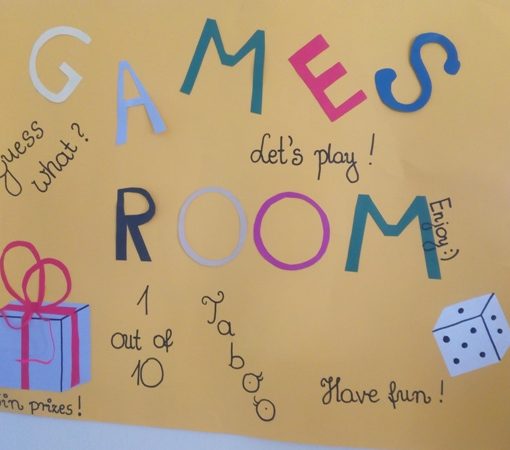 GAMES
Guess
what?
Let's play!
ROOM
Enjoy:)
1
out of
10
Taboo
Have fun!
prizes!